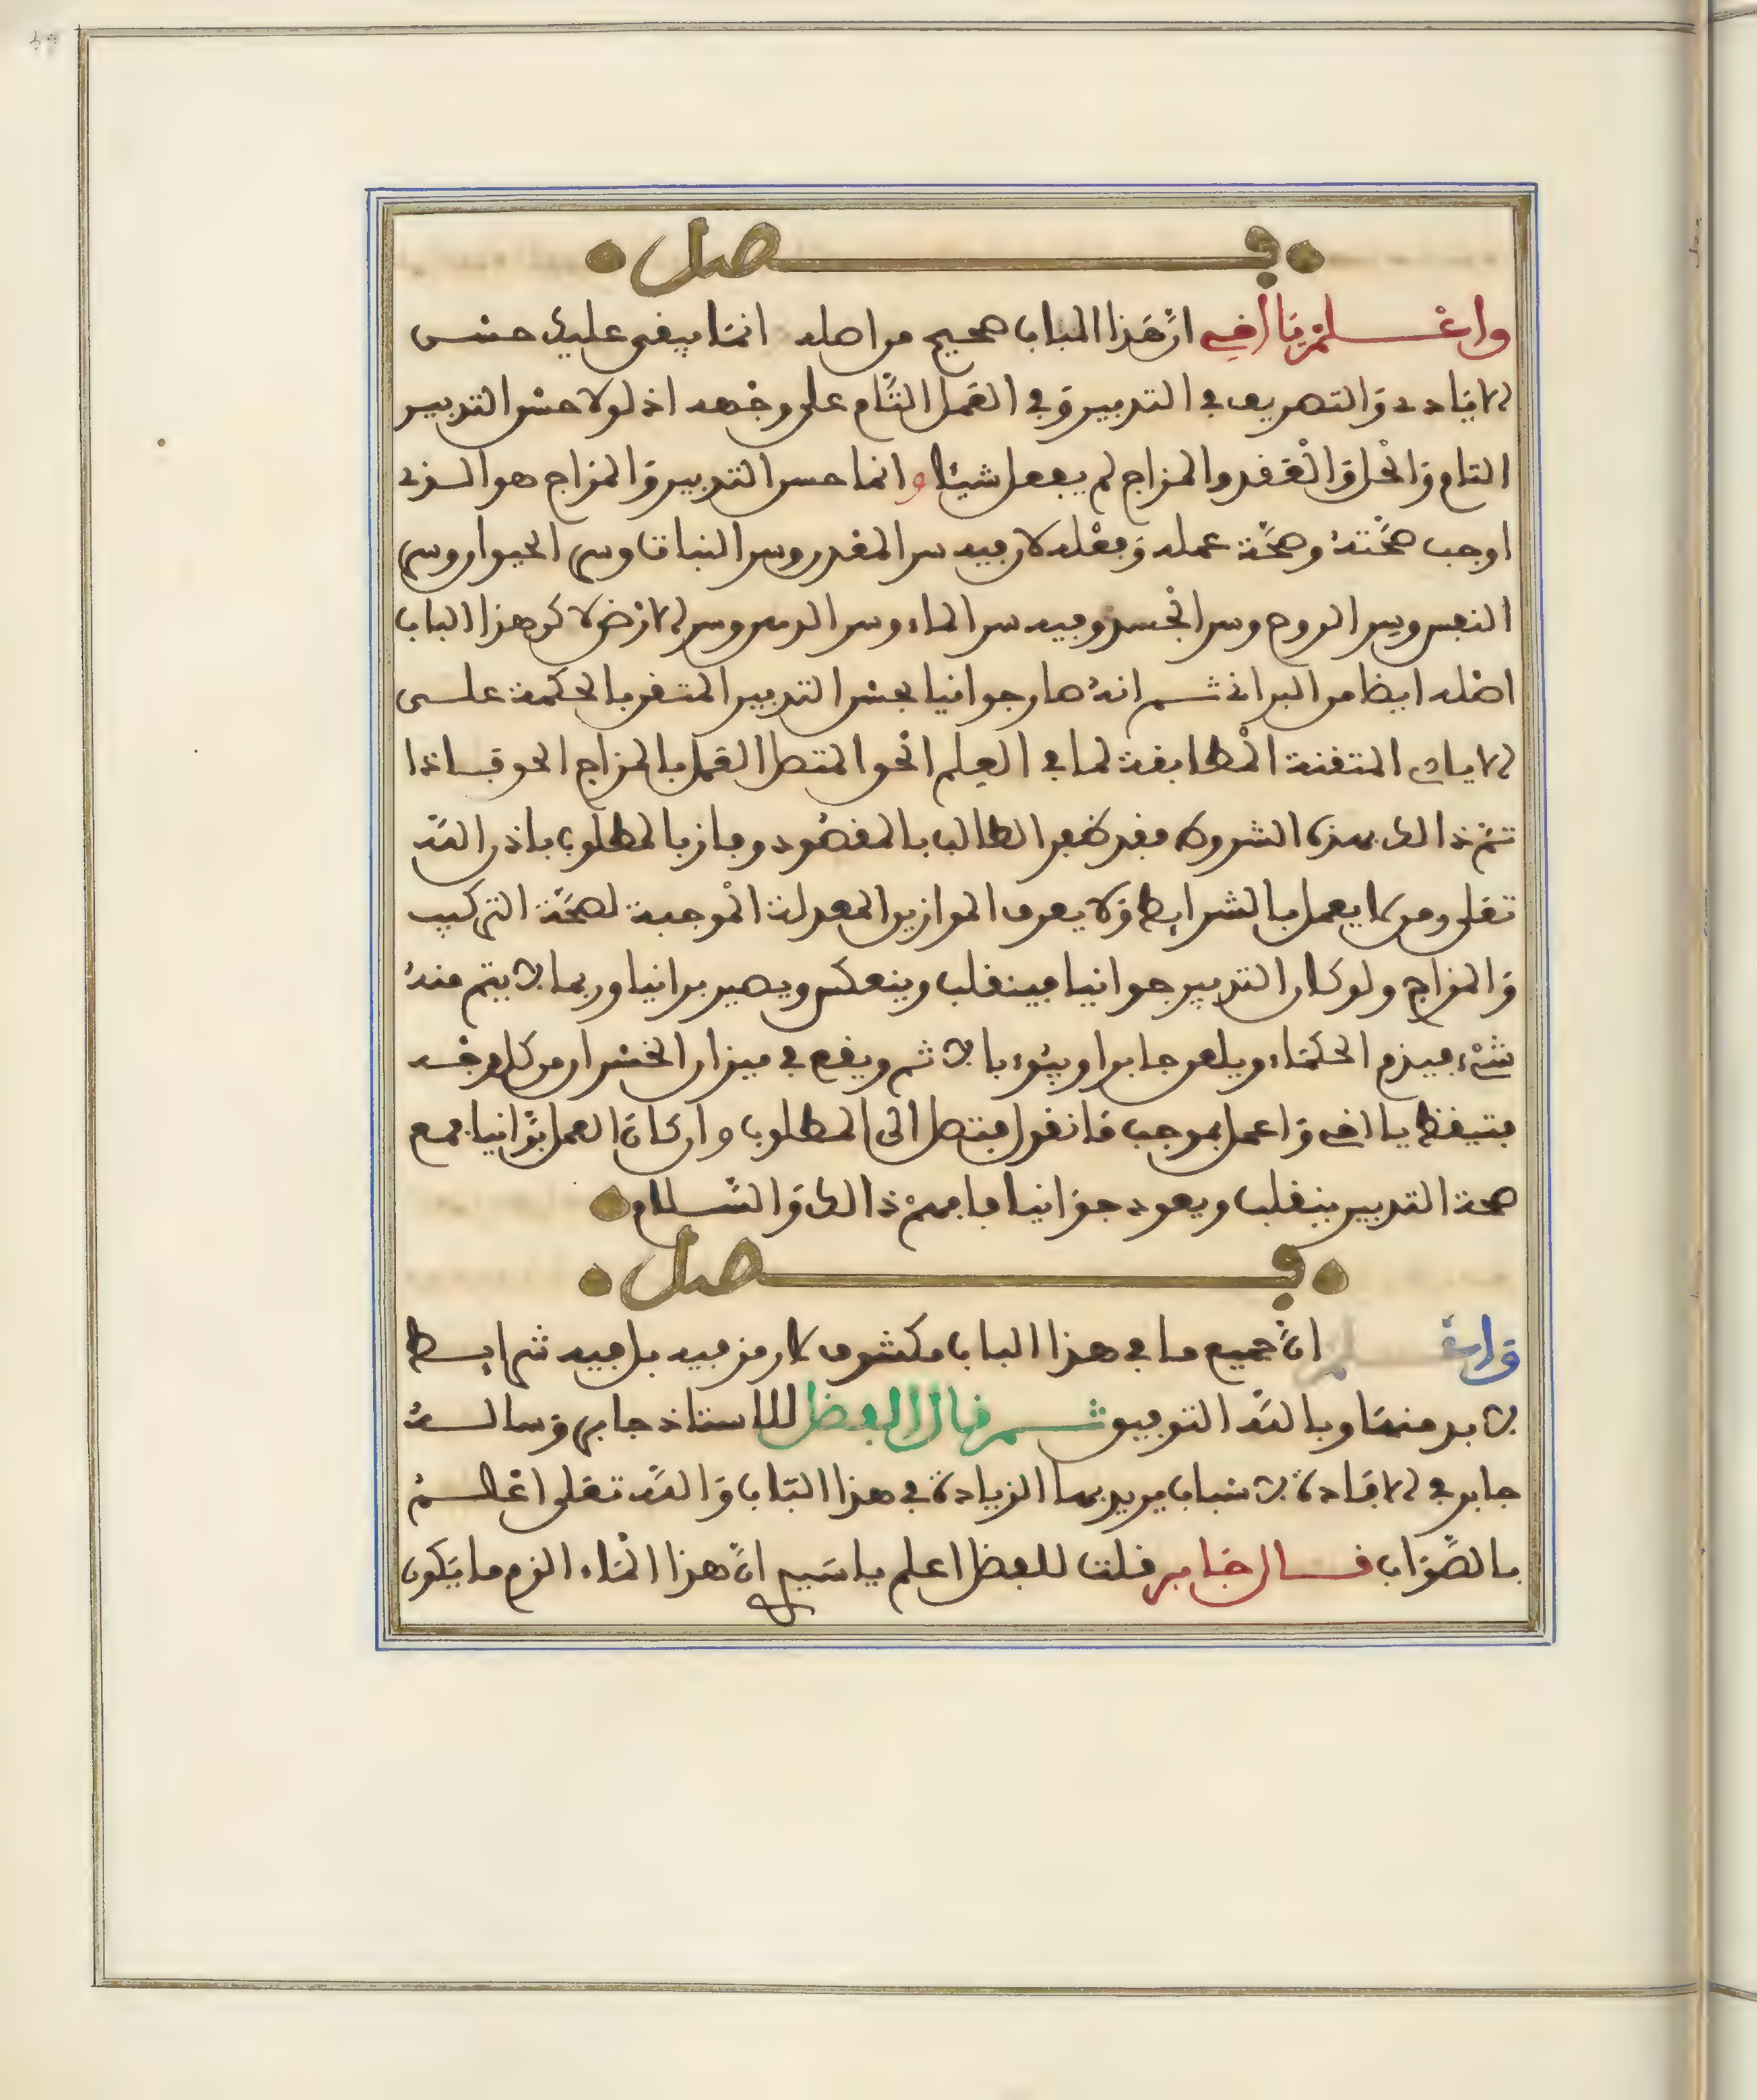 فصل
واعلم يا اخي ان هذا الباب صحيح من اصله انما يبقى عليك حسن
الافادة والتصريف في التدبير وفي العمل التام على وجهه اذ لولا حسن التدبير
التام والحل والعقد والمزاج لم يفعل شيئا وانما حسن التدبير والمزاج هو الذى
اوجب صحته وصحة عمله وفعله لان فيه سر المعدن وسر النبات وسر الحيوان وسر
النفس وسر الروح وسر الجسد وفيه سر الماء وسر الدهن وسر الارض لاكن هذا الباب
اصله ايضا من البرانى ثم انه صار جوانيا بحسن التدبير المتقن بالحكمة على
الايات المتقنة المطابقة لما في العلم الحق المتصل العمل بالمزاج الحق فاذا
تم ذالك بهذه الشروط فقد ظفر الطالب بالمقصود وفاز بالمطلوب باذن الله
تعلى ومن لا يعمل بالشرايط ولا يعرف الموازين المعدلة الموجبة لصحة التركيب
والمزاج ولو كان التدبير جوانيا فينقلب وينعكس ويصير برانيا وربما لا يتم منه
شيء فيذم الحكماء ويلعن جابرا ويبوء بالاثم ويقع في ميزان الخسران من كل وجه
فتيقظ يا اخي واعمل بموجب ما نقول فتصل الى المطلوب وان كان العمل برّانيا فمع
صحة التدبير ينقلب ويعود جوّانيا فافهم ذالك والسلام
فصل
واعلم انّ جميع ما في هذا الباب مكشوف لا رمز فيه بل فيه شرايط
لا بد منها وبالله التوفيق ثم قال البعض للاستاذ جابر وساله
جابر في الافادة لاسباب يريد بها الزيادة في هذا الباب والله تعلى اعلم
بالصواب قال جابر فلت للبعض اعلم يا سيم انّ هذا الماء الزم ما يكون